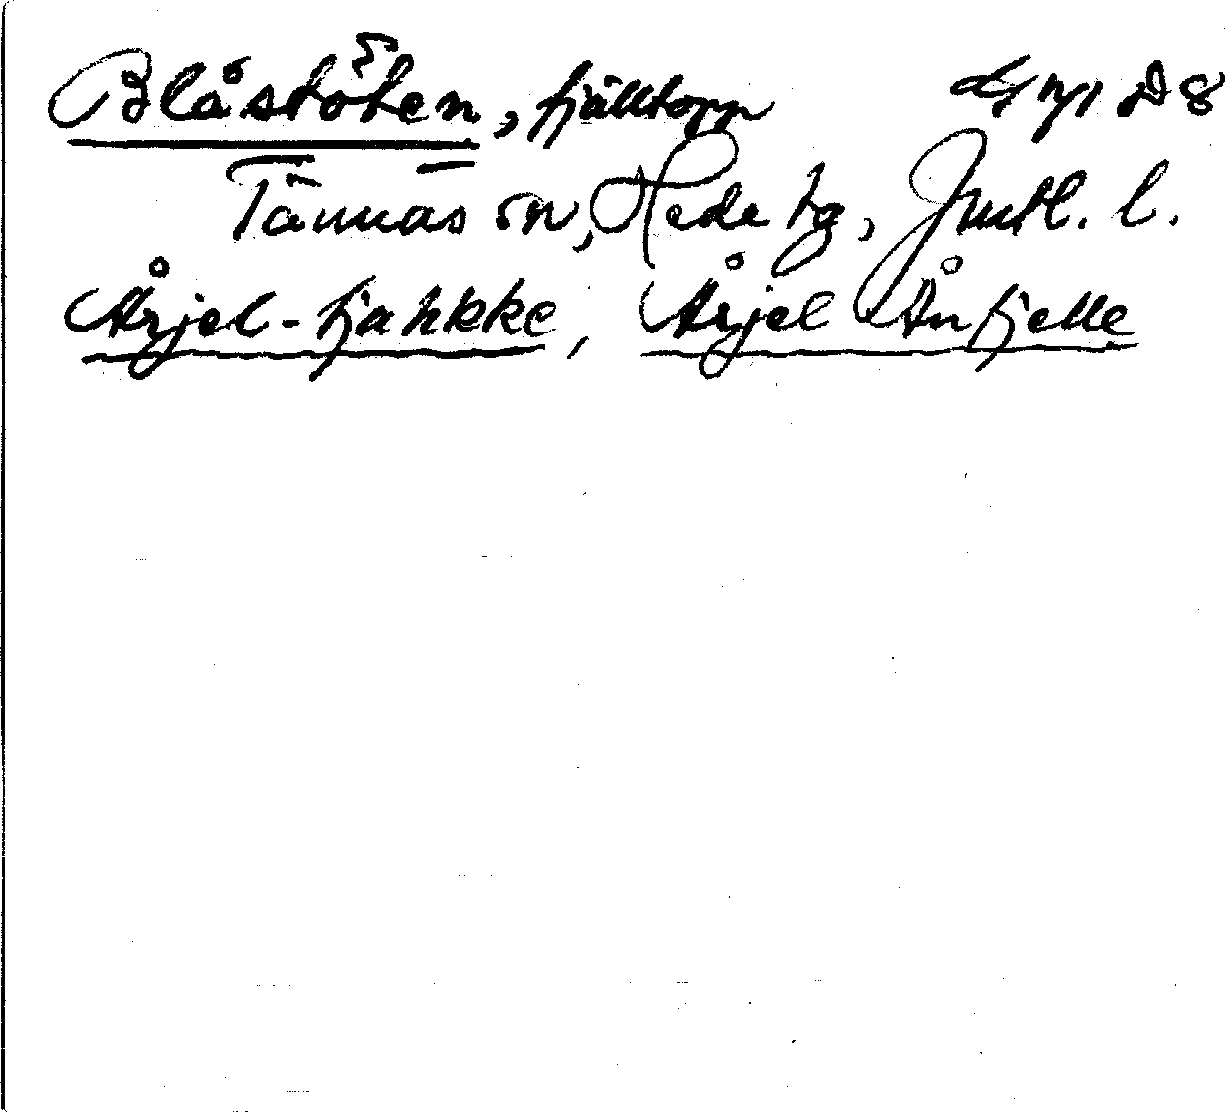 Blåstöten, fjälltopp D 8
Tännäs sn, Hede tg, Jmtl. l.
Årjel-tjahkke, Årjel Ånfjelle